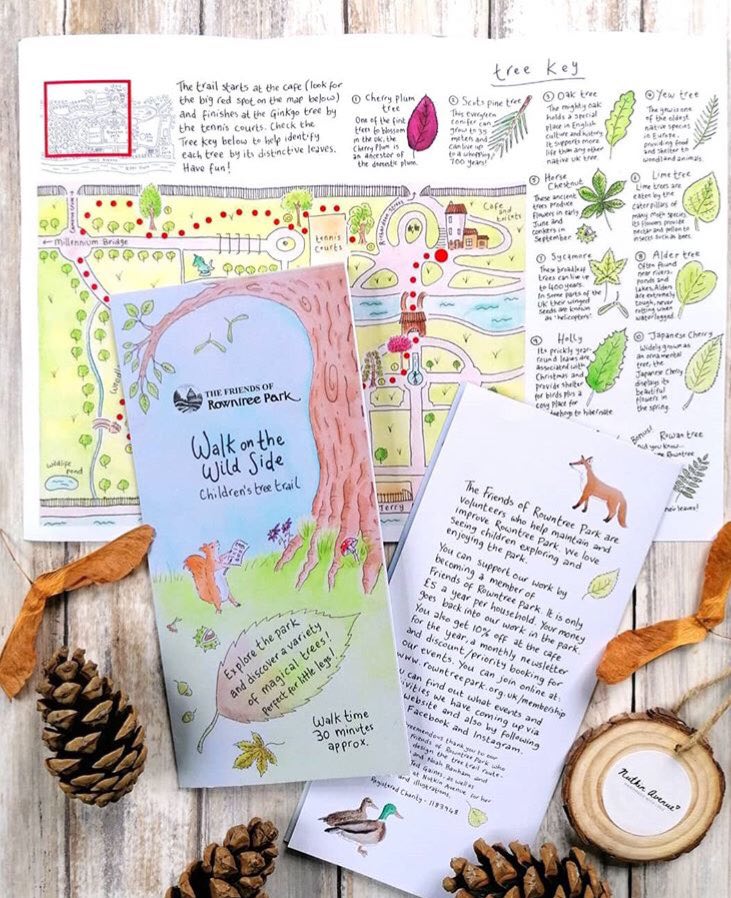 tree Key
The trail starts at the cafe (look for
the big red spot on the map below)
and finishes at the Ginkgo tree by
the tennis courts. Check the
Tree key below to help identify
each tree by its distinctive leaves.
Have fun!
① Cherry plum
tree
One of the first
trees to blossom
in the UK, the
Cherry Plum is
an ancestor of
the domestic plum.
② Scots pine tree
This evergreen
conifer can
grow to 35
meters and
can live up
to a whopping
700 years!
③ Oak tree
The mighty oak
holds a special
place in English
culture and history
It supports more
life than any other
native UK tree.
④ Yew tree
The yew is one
of the oldest
native species
in Europe,
providing food
and shelter to
woodland animals.
⑤ Horse
Chestnut
These ancient
trees produce
flowers in early
June and
conkers in
September
⑥ Lime tree
Lime trees are
eaten by the
caterpillars of
many moth species
its flowers provide
nectar and pollen to
insects such as bees.
⑦ Sycamore
These broadleaf
trees can live up
to 400 years.
In some parts of the
UK their winged
seeds are known
as 'helicopters'.
⑧ Alder tree
Often found
near rivers,
ponds and
lakes, Alders
are extremely
tough, never
rotting when
waterlogged
Holly
Its prickly year-
round leaves are
associated with
Christmas and
provide shelter
for birds plus a
cosy place for
to hibernate
⑩ Japanese Cherry
Widely grown as
an ornamental
tree, the
Japanese Cherry
displays its
beautiful
flowers in
the spring.
Bonus!
Rowan tree
you know
Rowntree
leaves!
← Millennium Bridge
tennis
courts
Richardson Street
Cafe
and
toilets
Wildlife
pond
Terry
THE FRIENDS OF
Rowntree Park
Walk on the
Wild Side
Children's tree trail
Explore the park
and discover a variety
of magical trees!
perfect for little legs!
Walk time
30 minutes
approx.
The Friends of Rowntree Park are
volunteers who help maintain and
improve Rowntree Park. We love
seeing children exploring and
enjoying the park.
You can support our work by
becoming a member of
Friends of Rowntree Park. It is only
£5 a year per household. Your money
goes back into our work in the park.
You also get 10% off at the cafe
for the year, a monthly newsletter
and discount/priority booking for
our events. You can join online at:
www.rowntreepark.org.uk/membership
can find out what events and
we have coming up via
website and also by following
Facebook and Instagram.
thank you to our
Friends of Rowntree Park who
design the tree trail route-
and Noah Banham and
Ted Gaines, as well as
at Nutkin Avenue for her
and illustrations.
Registered Charity - 1183948
Nutkin Avenue